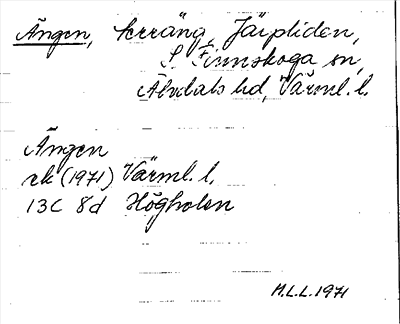 Ängen, terräng, Järpliden,
S. Finnskoga sn,
Älvdals hd, Värml. l.
Ängen
ek (1971) Värml. l.
13C 8d Högholen
M.L.L. 1971